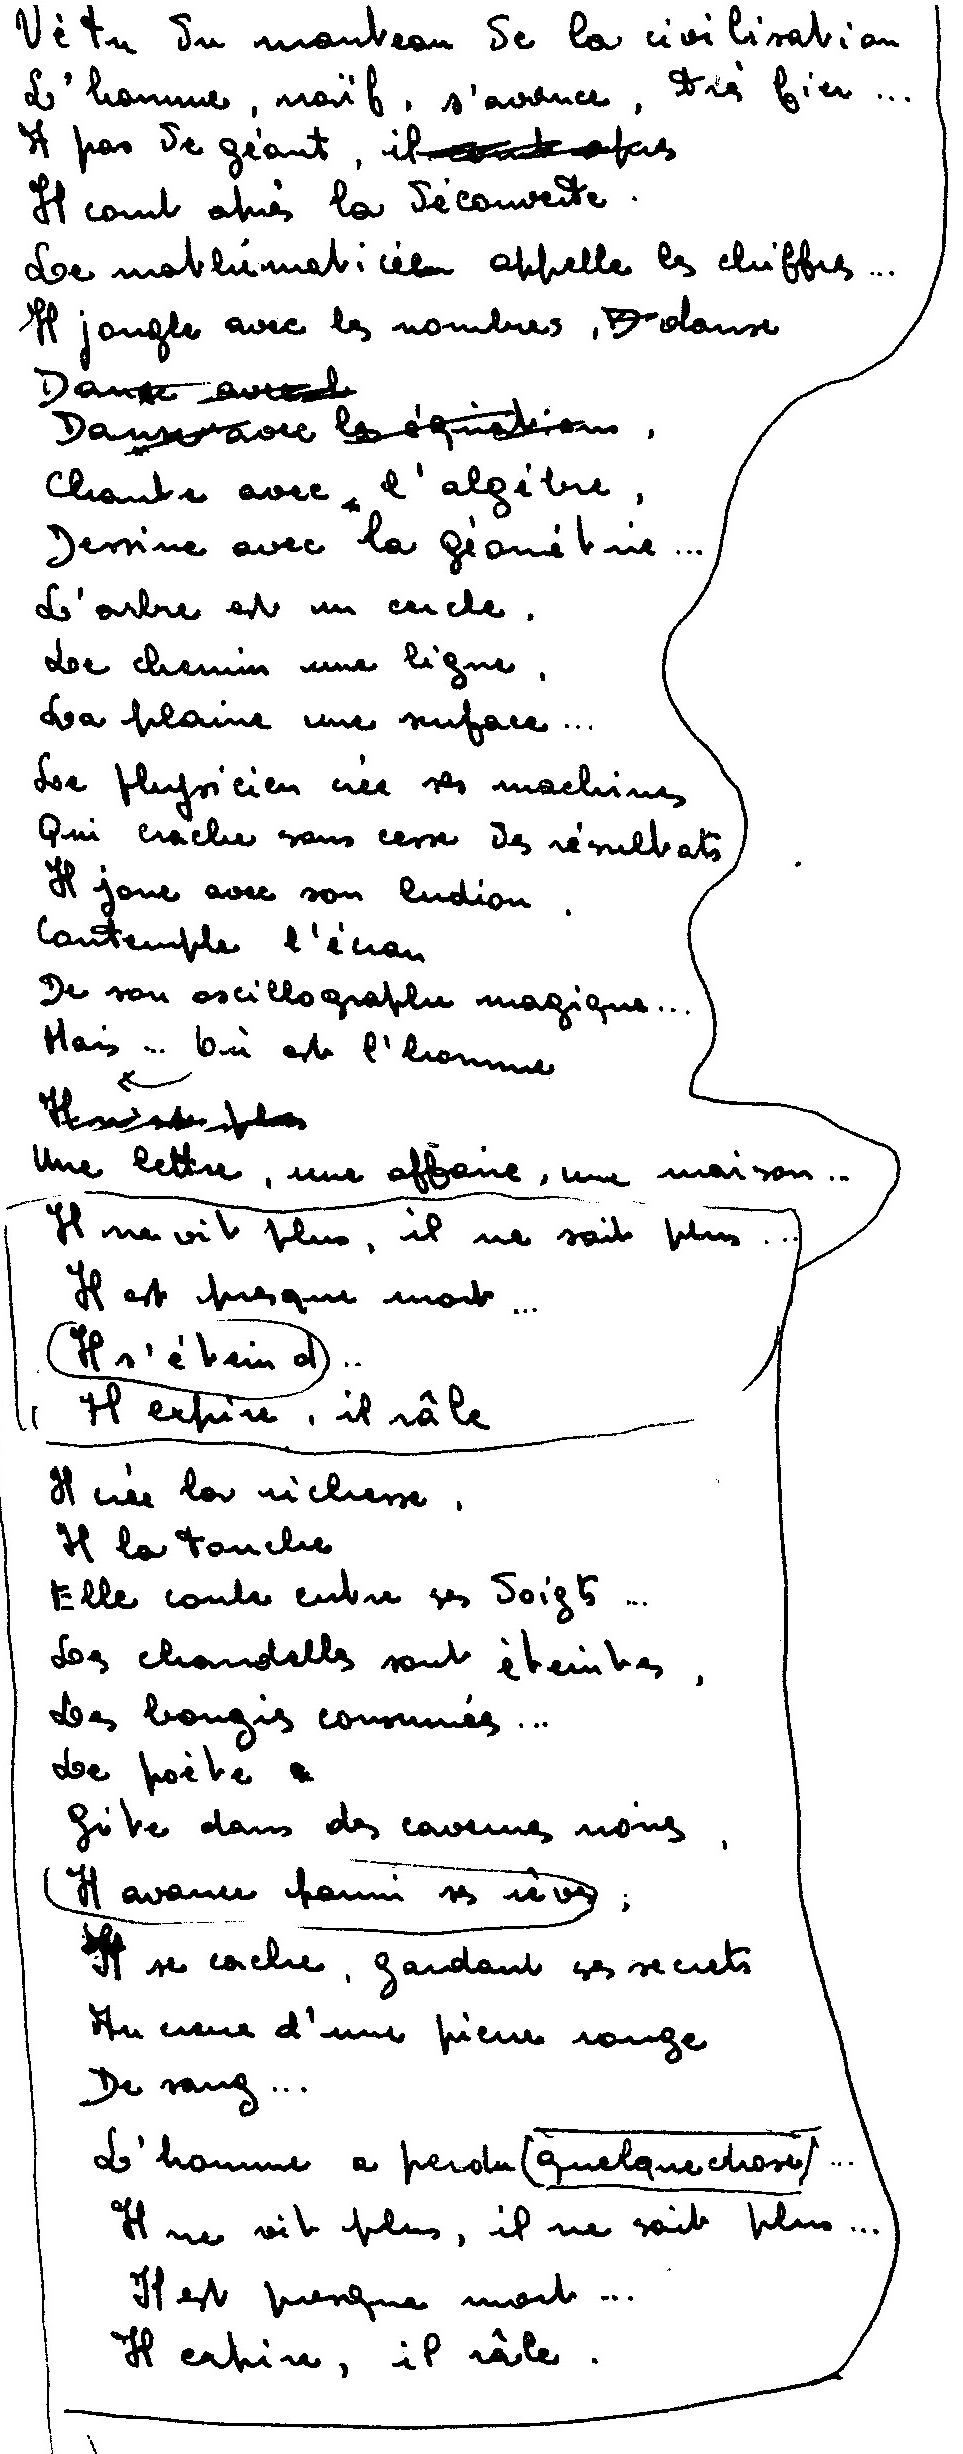 Vêtu du manteau de la civilisation
L'homme, naïf, s'avance, très fier ...
A pas de géant, il court après
Il court après la découverte.
Le mathématicien appelle les chiffres ...
Il jongle avec les nombres, danse
Danse avec l
Danse avec les équations,
Chante avec l'algèbre,
Dessine avec la géométrie ...
L'arbre est un cercle,
Le chemin une ligne,
La plaine une surface ...
Le physicien crée ses machines
Qui crache sans cesse des résultats
Il joue avec son ludion,
Contemple l'écran
De son oscillographe magique ...
Mais ... Où est l'homme
Il n'est plus
Une lettre, une affaire, une maison ..
Il ne vit plus, il ne sait plus ...
Il est presque mort ...
Il s'éteind ..
Il expire, il râle
Il crée la richesse,
Il la touche
Elle coule entre ses doigts ...
Les chandelles sont éteintes,
Les bougies consumées ...
Le poète
Gîte dans des cavernes noires,
Il avance parmi ses rêves,
Il se cache, gardant ses secrets
Au creux d'une pierre rouge
De sang ...
L'homme a perdu (quelque chose) ...
Il ne vit plus, il ne sait plus ...
Il est presque mort ...
Il expire, il râle.